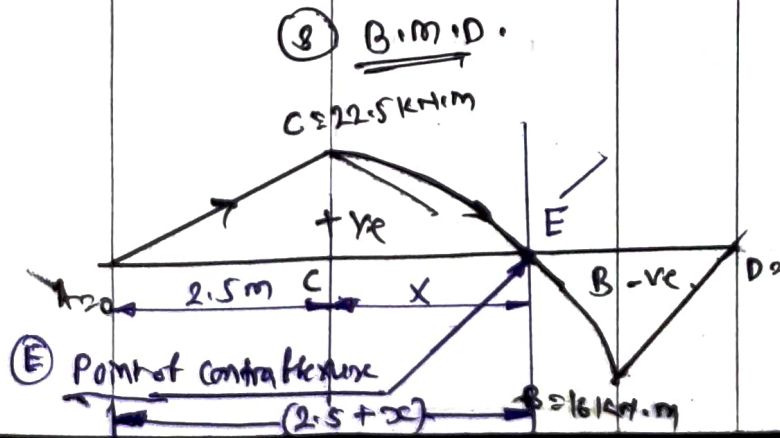 ③ B.M.D.
C = 22.5 kN.m
+ ve
E
A = 0
2.5 m
C
x
B - ve.
D =
Ⓔ Point of contraflexure
B = 16 kN.m
(2.5 + x)